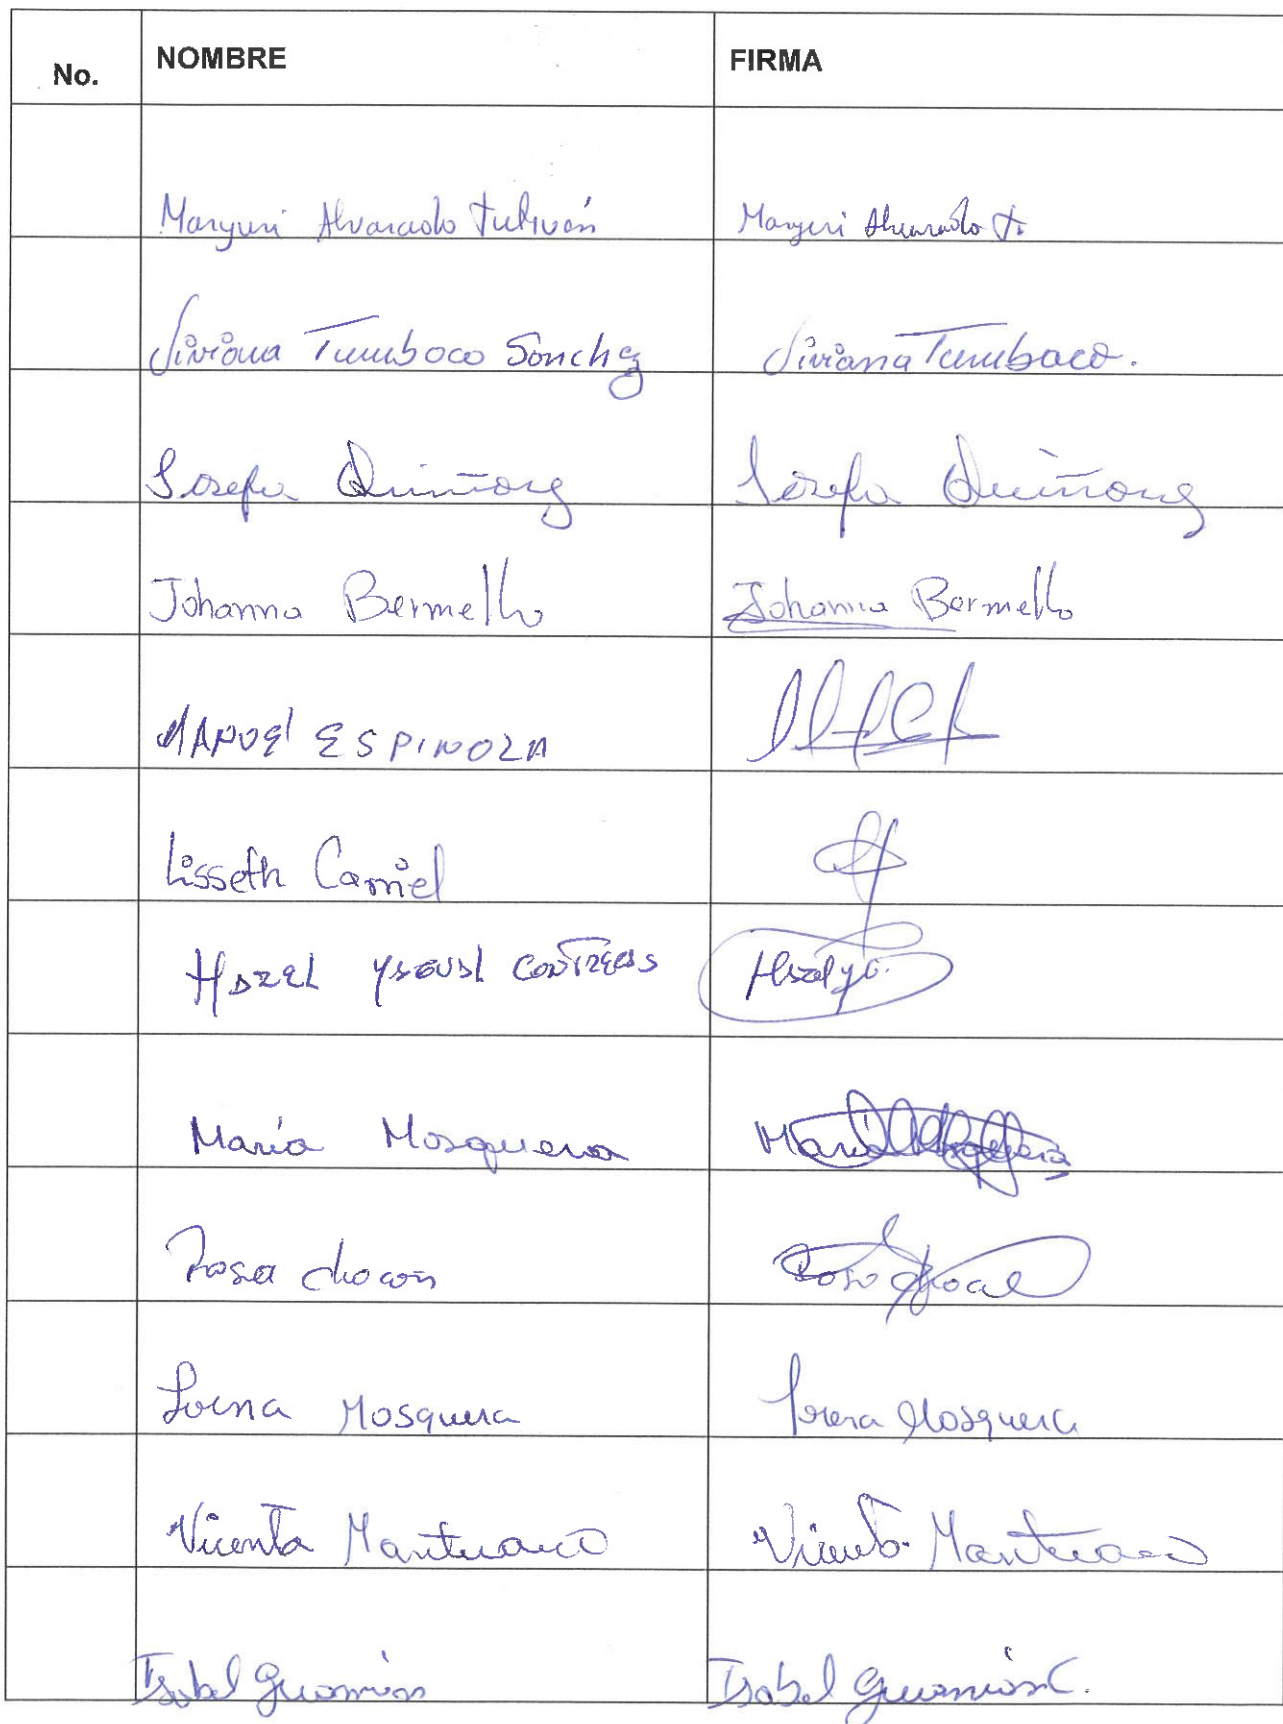 No. NOMBRE FIRMA
Maryuri Alvarado Tuliván Maryuri Alvarado T.
Viviana Tumbaco Sánchez Viviana Tumbaco.
Josefa Quiñonez Josefa Quiñonez
Johanna Bermello Johanna Bermello
MANUEl ESPINOZA
Lisseth Carriel
HAZEL CONTRERAS
María Mosquera María
Rosa chocan Rosa
Lorena Mosquera Lorena Mosquera
Vicenta Mantuano Vicenta Mantuano
Isabel Guaman Isabel Guaman C.